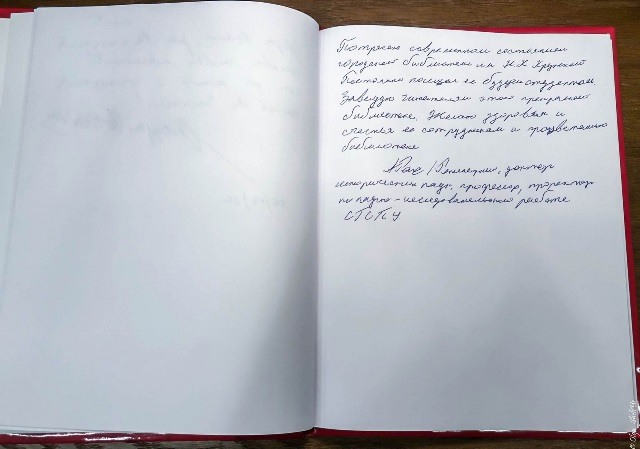 Потрясен современным состоянием
городской библиотеки им Н.К Крупской
Постоянно посещал ее будучи студентом.
Завидую читателям этой прекрасной
библиотеки. Желаю здоровья и
счастья ее сотрудникам и процветания
библиотеке
доктор
исторических наук, профессор, проректор
по научно-исследовательской работе